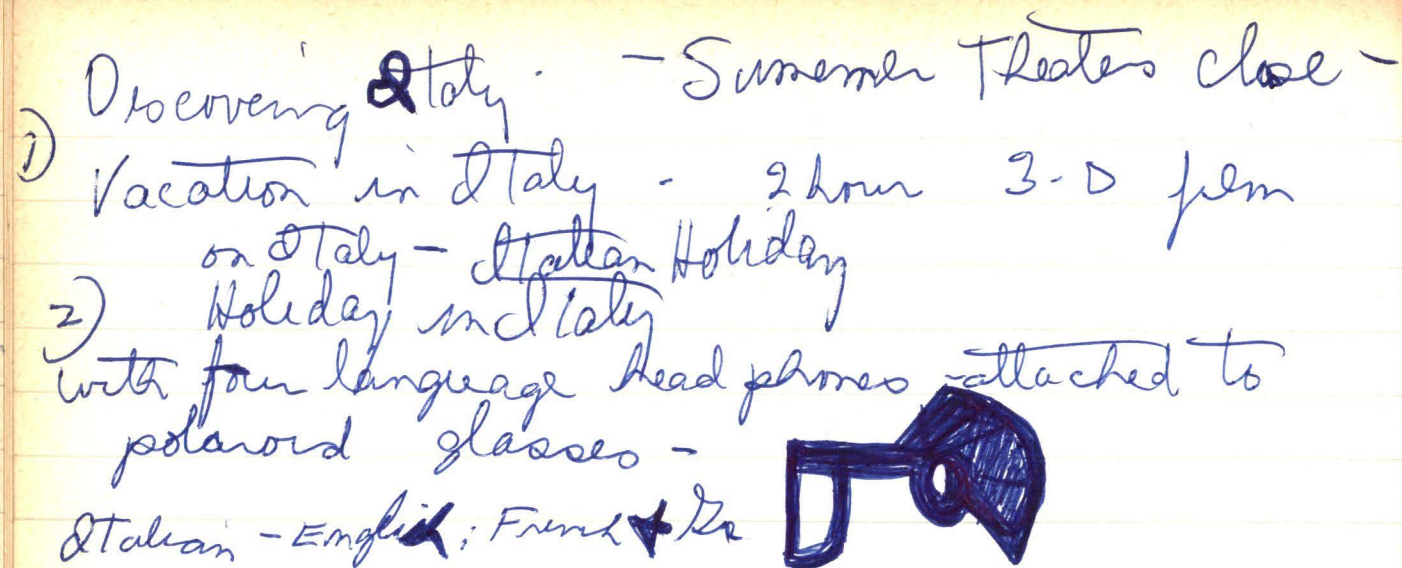 Discovering Italy. - Summer Theaters close -
1) Vacation in Italy - 2 hour 3-D film
on Italy - Italian Holiday
2) Holiday in Italy
with four language head phones - attached to
polaroid glasses -
Italian - English; French + Gr